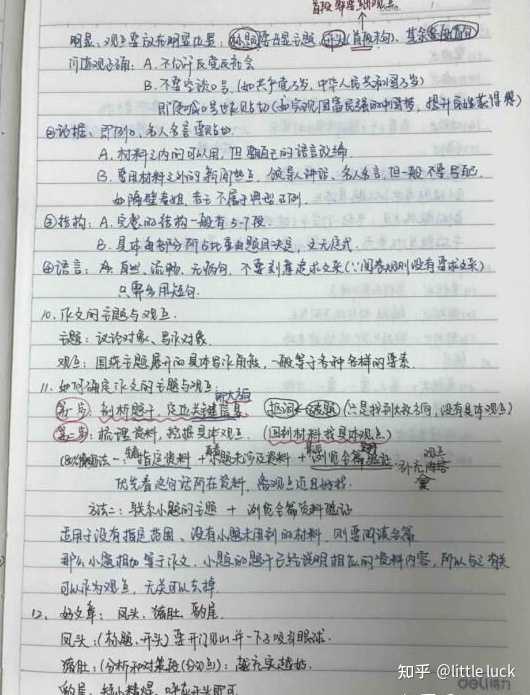 首段 最好要细观点
明显：观点要放在明显位置：标题凸显主题、开头（首段末句）、其余各段首句
问体观正确：A. 不仇评 反党反社会
B. 不要空谈口号（如共产党万岁，中华人民共和国万岁）
即使喊口号也要贴切（如实现国富民强的中国梦，提升百姓获得感）
②论据：即例子，名人名言要贴切.
A. 材料之内的可以用，但要自己的语言改编.
B. 要用材料之外的新闻热点、领导人讲话、名人名言，但一般不要写自己.
如隔壁老祖，者三不属于典型正例.
③结构：A. 完整的结构一般有5-7段
B. 具体每部分所占比重由题目决定，文无定式.
④语言：A. 自然、流畅、无病句，不要刻意追求文采（∵阅卷规则没有要求文采）
只要多用短句.
10. 作文的主题与观点.
主题：议论对象、写作对象.
观点：围绕主题展开的具体写作角度，一般等于各种各样的要素.
11. 如何确定作文的主题与观点.
第一步：剖析题干，定位关键信息 抠词 ← 读题（只是找到大致方向，没有具体观点）
第二步：梳理资料，挖掘具体观点.（回到材料找具体观点）
方法一：指定资料 + 小题未涉及资料 + 浏览全篇验证 观点 补充内容
优先看这句话所在资料，看观点近且好找.
方法二：联系小题的主题 + 浏览全篇资料验证
适用于没有指定范围、没有小题未用到的材料，则要阅读全篇
那么小题相加等于作文，小题的题干已经说明相应的资料内容，所以与之有关
可以作为观点，无关可以去掉.
12. 好文章：凤头、猪肚、豹尾.
凤头：（标题、开头）要开门见山并一下子吸引眼球.
猪肚：（分析和对策段（分论点）：越充实越好.
豹尾：短小精悍，呼应开头即可.
知乎 @little luck
deli得力